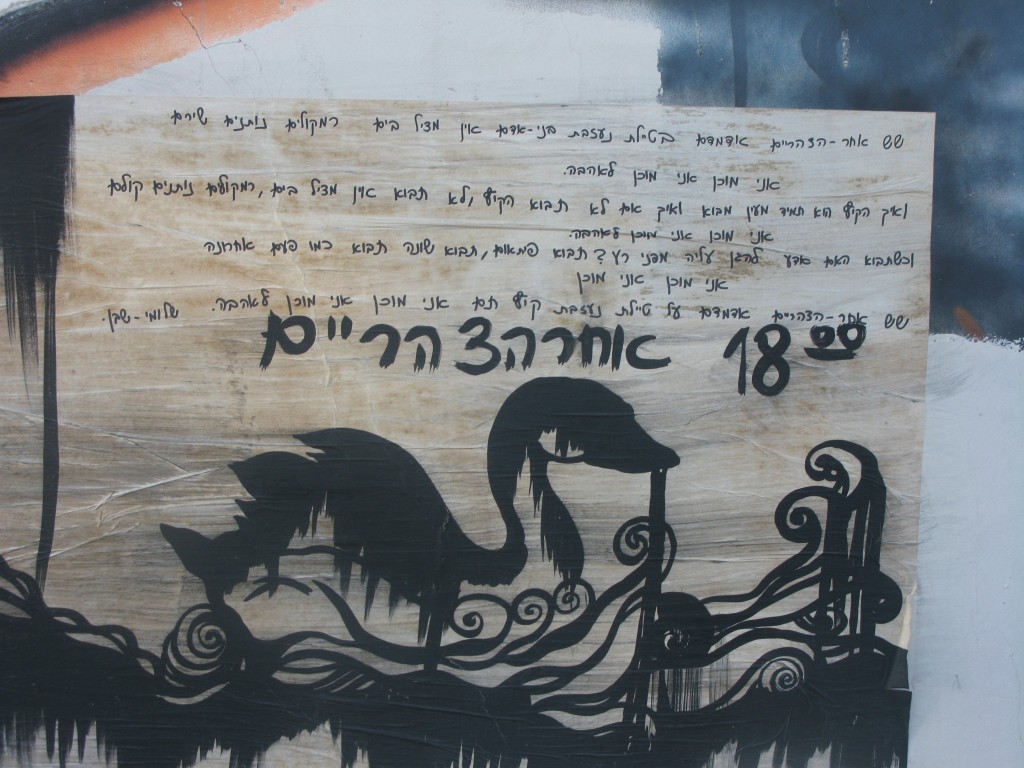 שש אחר-הצהריים אדמדם בטיילת נעזבת בני-אדם אין מציל בים רמקולים נותנים שירים
אני מוכן אני מוכן לאהבה.
ואיך הקיץ הוא תמיד מעין מבוא ואיך אם לא תבוא הקיץ, לא תבוא אין מציל בים, רמקולים ניתנים קולם
אני מוכן אני מוכן לאהבה.
וכשתבוא האם אדע להגן עליה מפני רץ? תבוא פתאום, תבוא שונה תבוא כמו פעם אחרונה
אני מוכן אני מוכן
שש אחר-הצהריים אדמדם על טיילת נעזבת קיץ חם אני מוכן אני מוכן לאהבה. שלומי-שבן.
18 00 אחר הצהריים